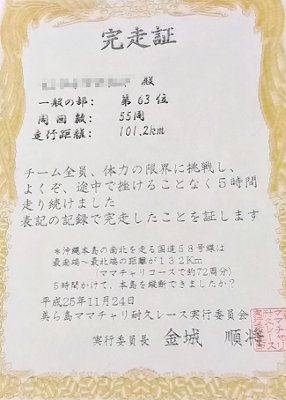 完走証
殿
一般の部: 第63位
周回数: 55周
走行距離: 101.2km
チーム全員、体力の限界に挑戦し、
よくぞ、途中で挫けることなく5時間
走り続けました
表記の記録で完走したことを証します
*沖縄本島の南北を走る国道58号線は
最南端～最北端の距離が132Km
(ママチャリコースで約72周分)
5時間かけて、本島を縦断できましたか?
平成25年11月24日
美ら島ママチャリ耐久レース実行委員会
実行委員長 金城 順雄